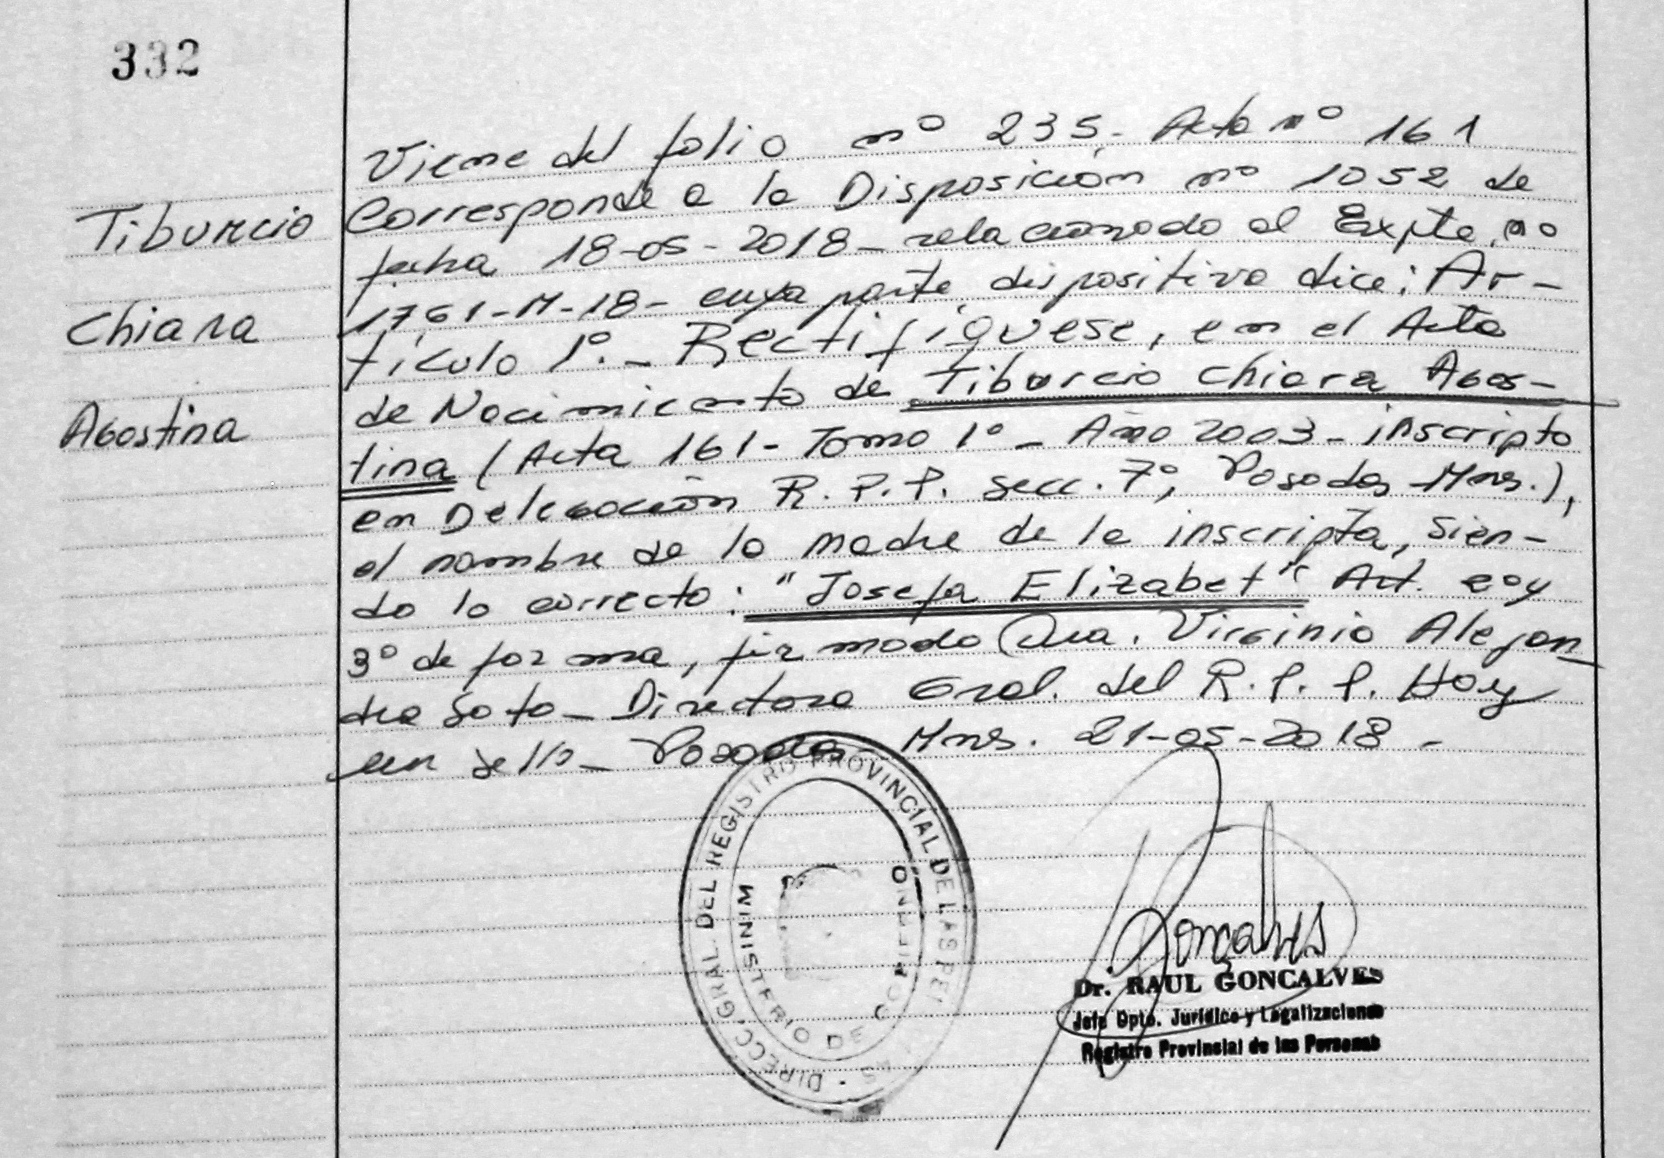 332
Tiburcio
Chiara
Agostina
Viene del folio nº 235. Acta nº 161
Corresponde a la Disposición nº 1052 de
fecha 18-05-2018- relacionado al Expte. nº
1761-M-18- cuya parte dispositiva dice: Ar-
tículo 1º.- Rectifíquese, en el Acta
de Nacimiento de Tiburcio Chiara Agos-
tina (Acta 161- Tomo 1º- Año 2003- inscripta
en Delegación R.P.P. Secc. 7º, Posadas Mnes.),
el nombre de la madre de la inscripta, sien-
do lo correcto: "Josefa Elizabet" Art. 2º y
3º de forma, firmado Dra. Virginia Alejan-
dra Soto- Directora Gral. del R.P.P. Hoy
un sello- Posadas Mnes. 21-05-2018-
DIRECC. GRAL. DEL REGISTRO PROVINCIAL DE LAS
MINISTERIO DE GOBIERNO
Goncalves
Dr. RAUL GONCALVES
Jefe Dpto. Jurídico y Legalizaciones
Registro Provincial de las Personas